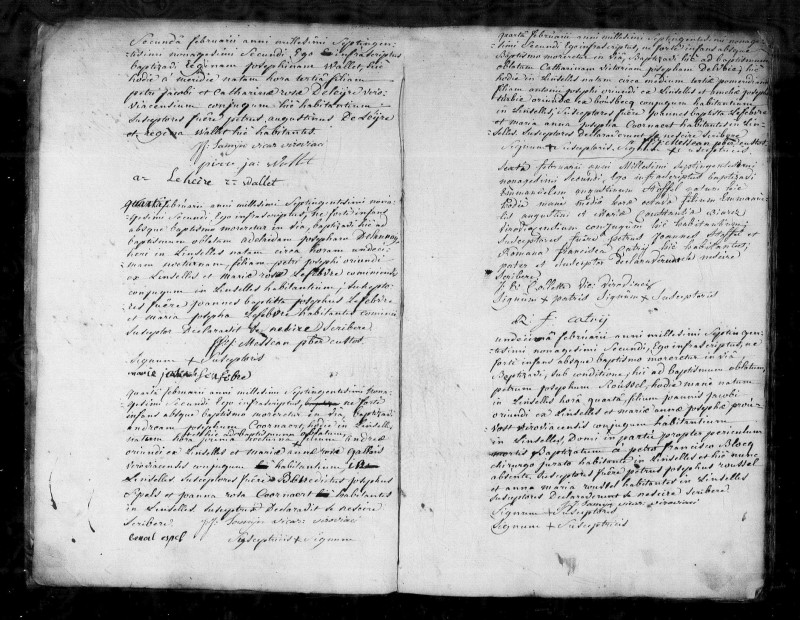 Secundâ februarii anni millesimi septingen-
tesimi nonagesimi secundi, Ego infrascriptus
baptizavi Reginam josepham Wallet, hîc
hodie a meridie natam hora tertia filiam
petri jacobi et Catharinæ rosæ Deleyre viro-
viacensium conjugum hîc habitantium
susceptores fuêre petrus augustinus Deleyre
et regina Wallet hîc habitantes.
vicar viroviaci
piere ja: Wallet
Leheire Wallet
quarta februarii anni millesimi septingentesimi nona-
gesimi secundi, Ego infrascriptus, ne fortè infans
absque baptismo moreretur in via, baptizavi hîc ad
baptismum oblatam adelaidam josepham Delannoy
heri in Linselles natam circa horam undeci-
mam nocturnam filiam petri josephi oriundi
ex Linselles et mariæ rosæ Lefebvre cominiensis
conjugum in Linselles habitantium; suscepto-
res fuêre joannes baptista josephus Lefebvre
et maria josepha Lefebvre habitantes cominii
susceptor Declaravit se nescire scribere
Messean pbr custos
Signum + susceptoris
marie Lefebre
quarta februarii anni millesimi septingentesimi nona-
gesimi secundi Ego infrascriptus, ne fortè
infans absque baptismo moreretur in via, baptizavi
andream josephum Coornaert, hodie in Linselles
natum hîc ad baptismum oblatum
hora nocturna filium andreæ
oriundi ex Linselles et mariæ annæ rosæ Gallois
viroviacensis conjugum habitantium in
Linselles susceptores fuêre Benedictus josephus
Espels et joanna rosa Coornaert habitantes
in Linselles susceptrix Declaravit se nescire
scribere vicar viroviaci
benoit espel susceptricis + signum
quarta februarii anni millesimi septingentesimi nonage-
simi secundi Ego infrascriptus, ne fortè infans absque
baptismo moreretur in via, Baptizavi hîc ad baptismum
oblatam Catharinam victoriam josepham Delebecq, hîc
hodie in Linselles natam circa mediam tertiæ pomeridianæ
filiam antonii josephi oriundi ex Linselles et ameliæ josephæ
oriundæ ex bousbecq conjugum habitantium
in Linselles, susceptores fuêre joannes baptista Lefebvre
et maria anna josepha Coornaert habitantes in Lin-
selles. Susceptores declaraverunt se nescire scribere
Signum + susceptoris. Messean pbr custos
Signum + susceptricis
Sexta februarii anni Millesimi septingentesimi
nonagesimi secundi, Ego infrascriptus baptizavi
Emmanuelem augustinum Hoffel natum hîc
hodie mane mediâ horæ octavæ filium Emmanue-
lis augustini et Mariæ Constantiæ
viroviacensium conjugum hîc habitantium;
Susceptores fuêre Petrus joannes Hoffel et
Romana francisca Catry hîc habitantes;
pater et susceptor Declaraverunt se nescire
scribere
J. B. Collette Vic. viroviacensis
Signum + patris Signum + susceptoris
R f catrij
undecimâ februarii anni millesimi septingen-
tesimi nonagesimi secundi, Ego infrascriptus, ne
fortè infans absque baptismo moreretur in viâ,
baptizavi, sub conditione, hîc ad baptismum oblatum,
petrum josephum Roussel, hodie mane natum
in Linselles horâ quartâ, filium joannis jacobi
oriundi ex Linselles et mariæ annæ josephæ provi-
vost viroviacensis conjugum habitantium
in Linselles, Domi in partu propter periculum
mortis Baptizatum a petro francisco Blocq
chirurgo jurato habitante in Linselles et hîc nunc
absente, susceptores fuêre petrus josephus roussel
et anna maria roussel habitantes in Linselles
susceptores Declaraverunt se nescire scribere
vicar viroviaci
Signum + susceptoris
Signum + susceptricis